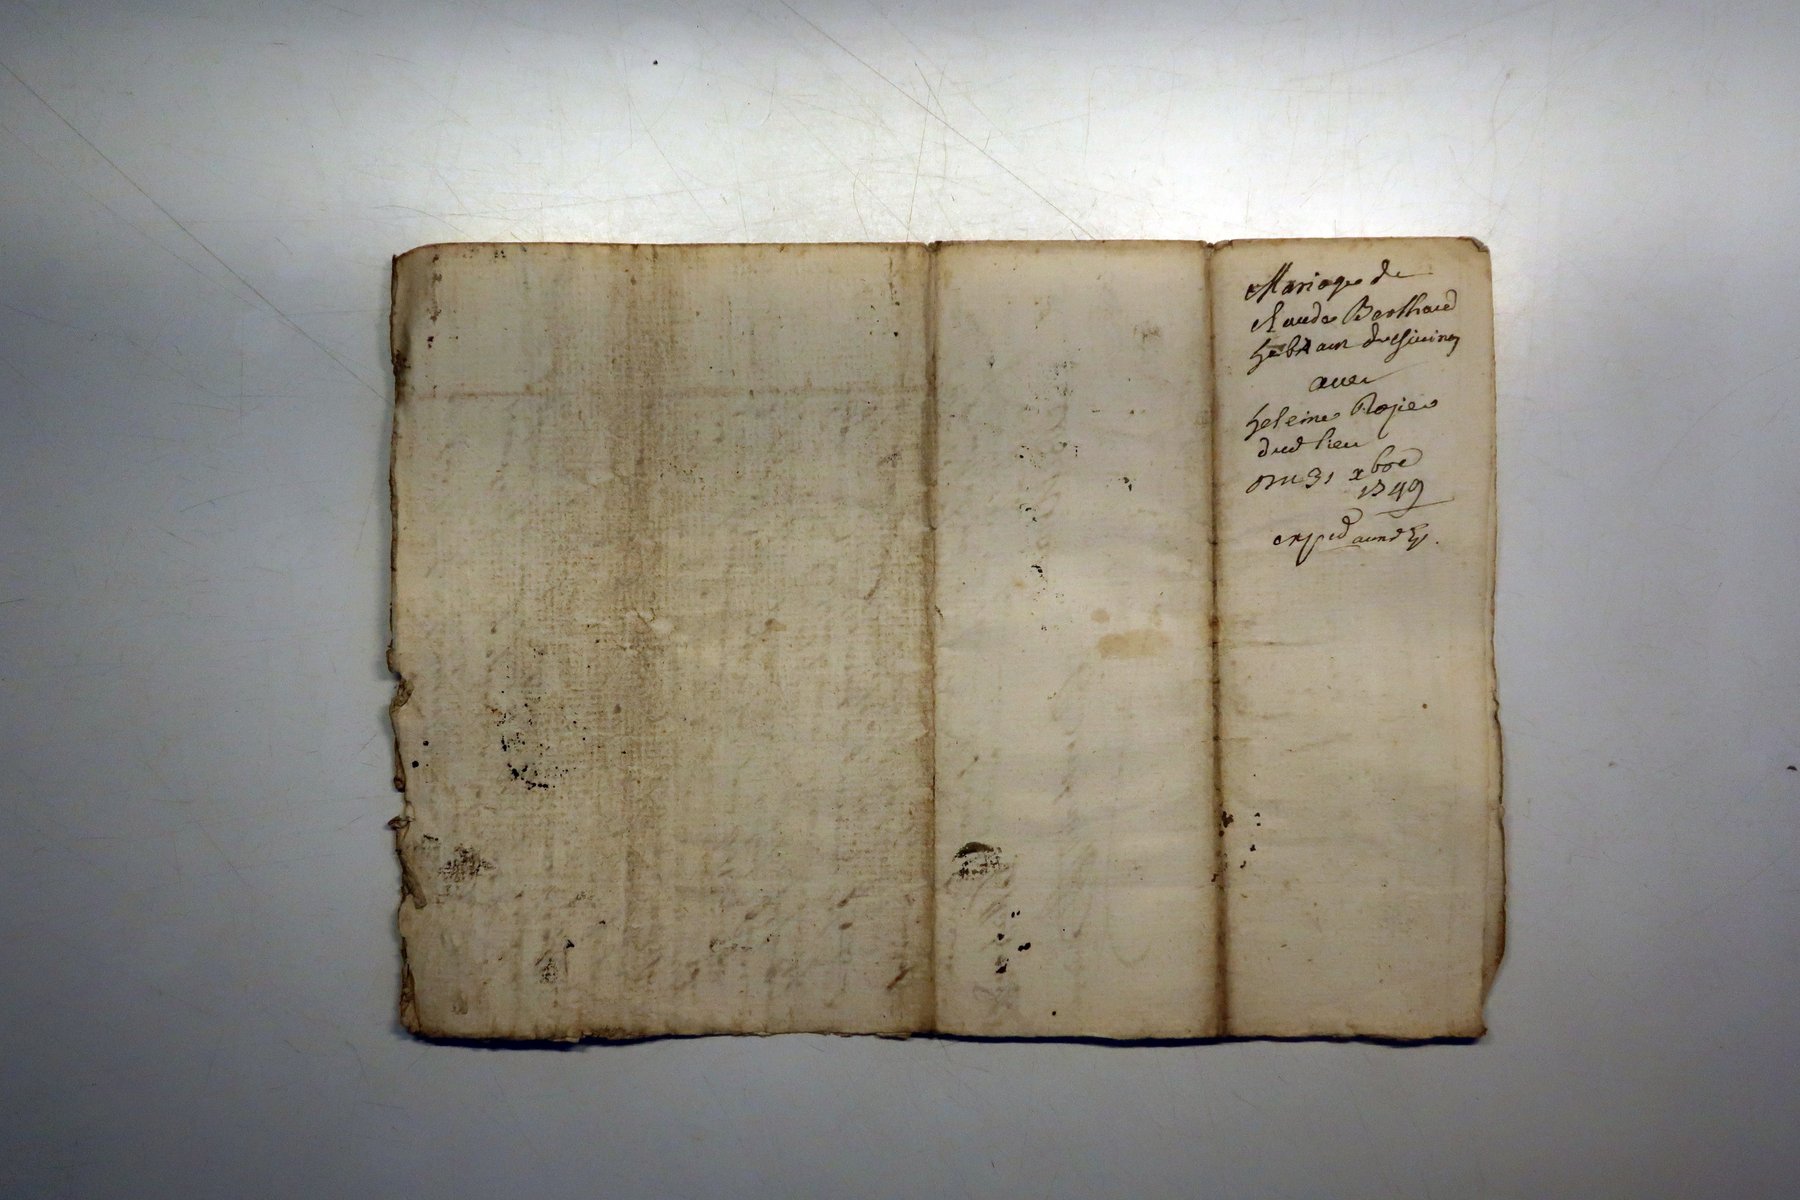 Mariage de
claude Berthaud
habitant de
avec
heleine Rogier
dud lieu
Du 31 xbre
1749
exped aund Ep.